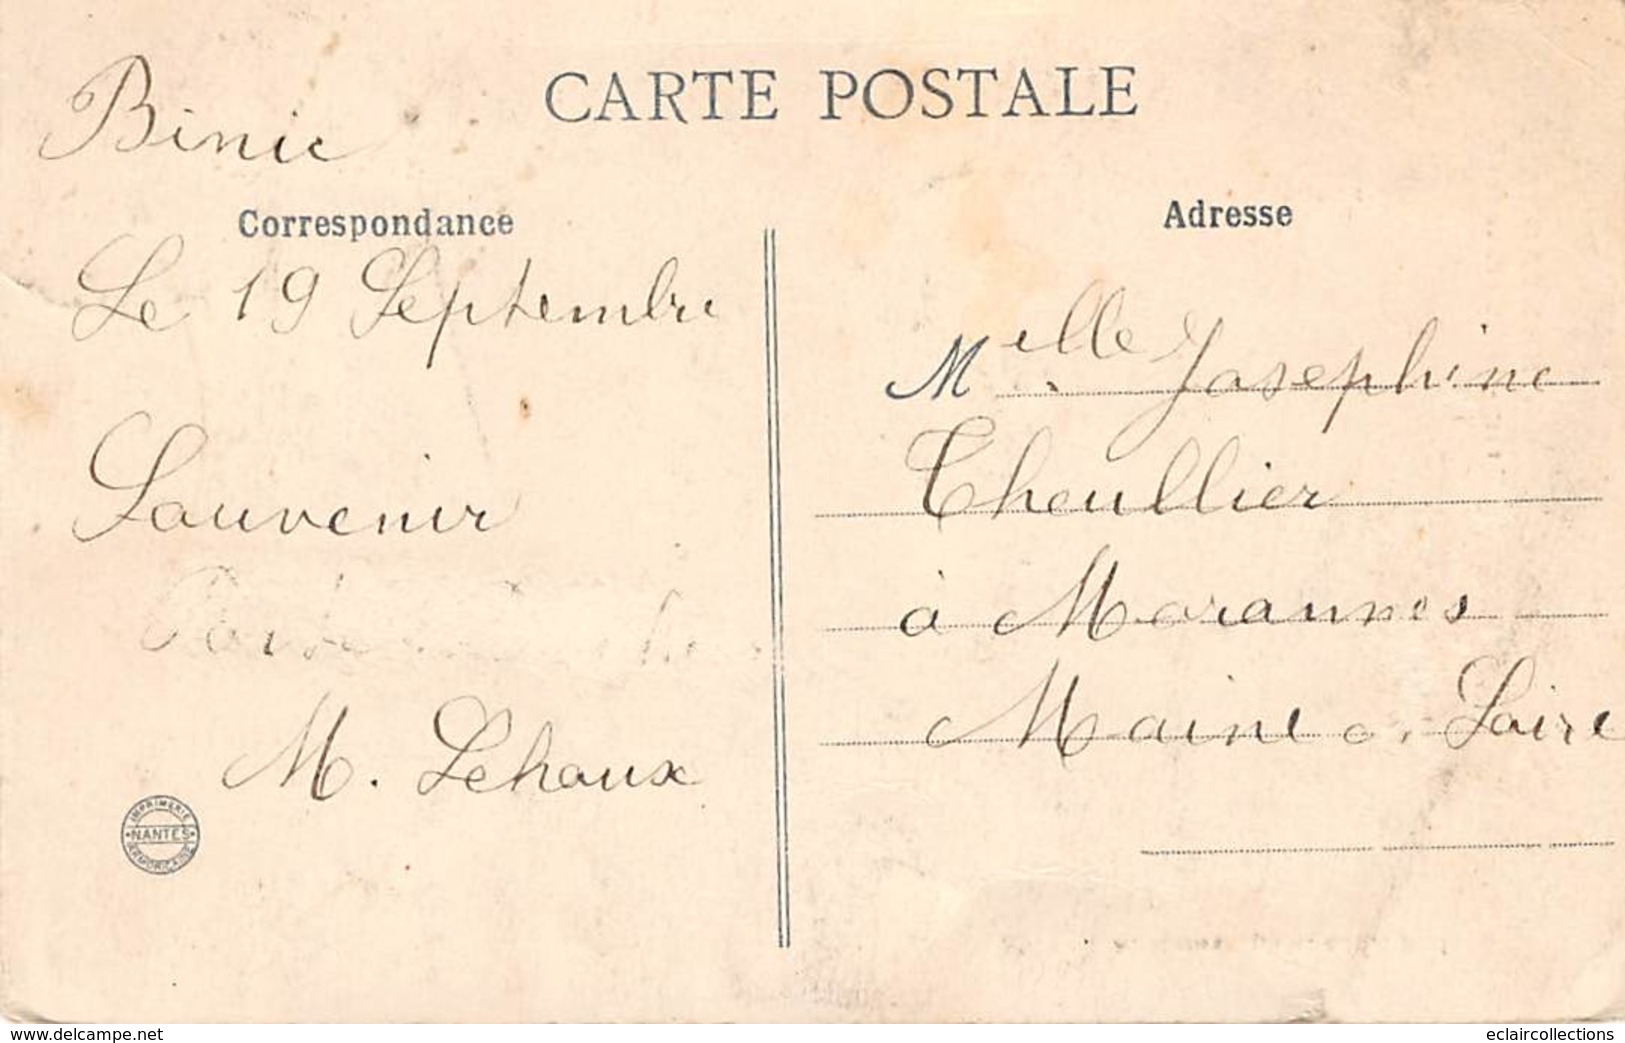 CARTE POSTALE
Binic
Correspondance
Le 19 Septembre
Souvenir
M. Lehoux
IMPRIMERIE
NANTES
ARMORICAINE
Adresse
Melle Josephine
Theullier
à Morannes
Maine
Loire
www.delcampe.net
eclaircollections